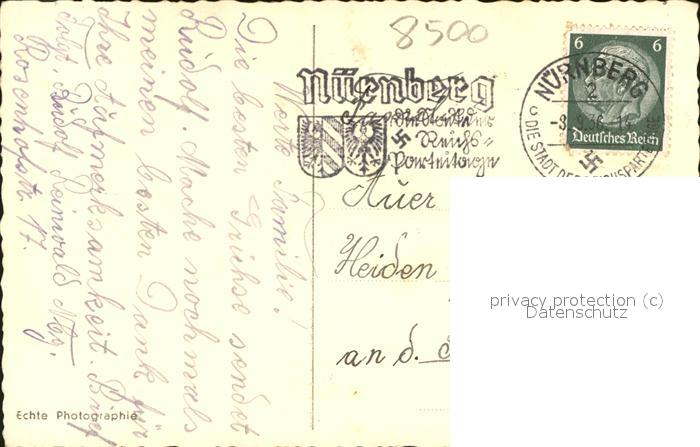 8500
6 6
Deutsches Reich
NÜRNBERG
2
DIE STADT DER REICHSPARTE
Nürnberg
die Stadt der
Reichs-
Parteitage
Werte Familie!
Die besten Grüße sendet
Rudolf. Mache nochmals
meinen besten Dank für
Ihre Aufmerksamkeit. Brief
folgt. Rudolf Reinwald Nbg.
17.
Familie
Auer
Heiden
an d.
privacy protection (c)
Datenschutz
Echte Photographie